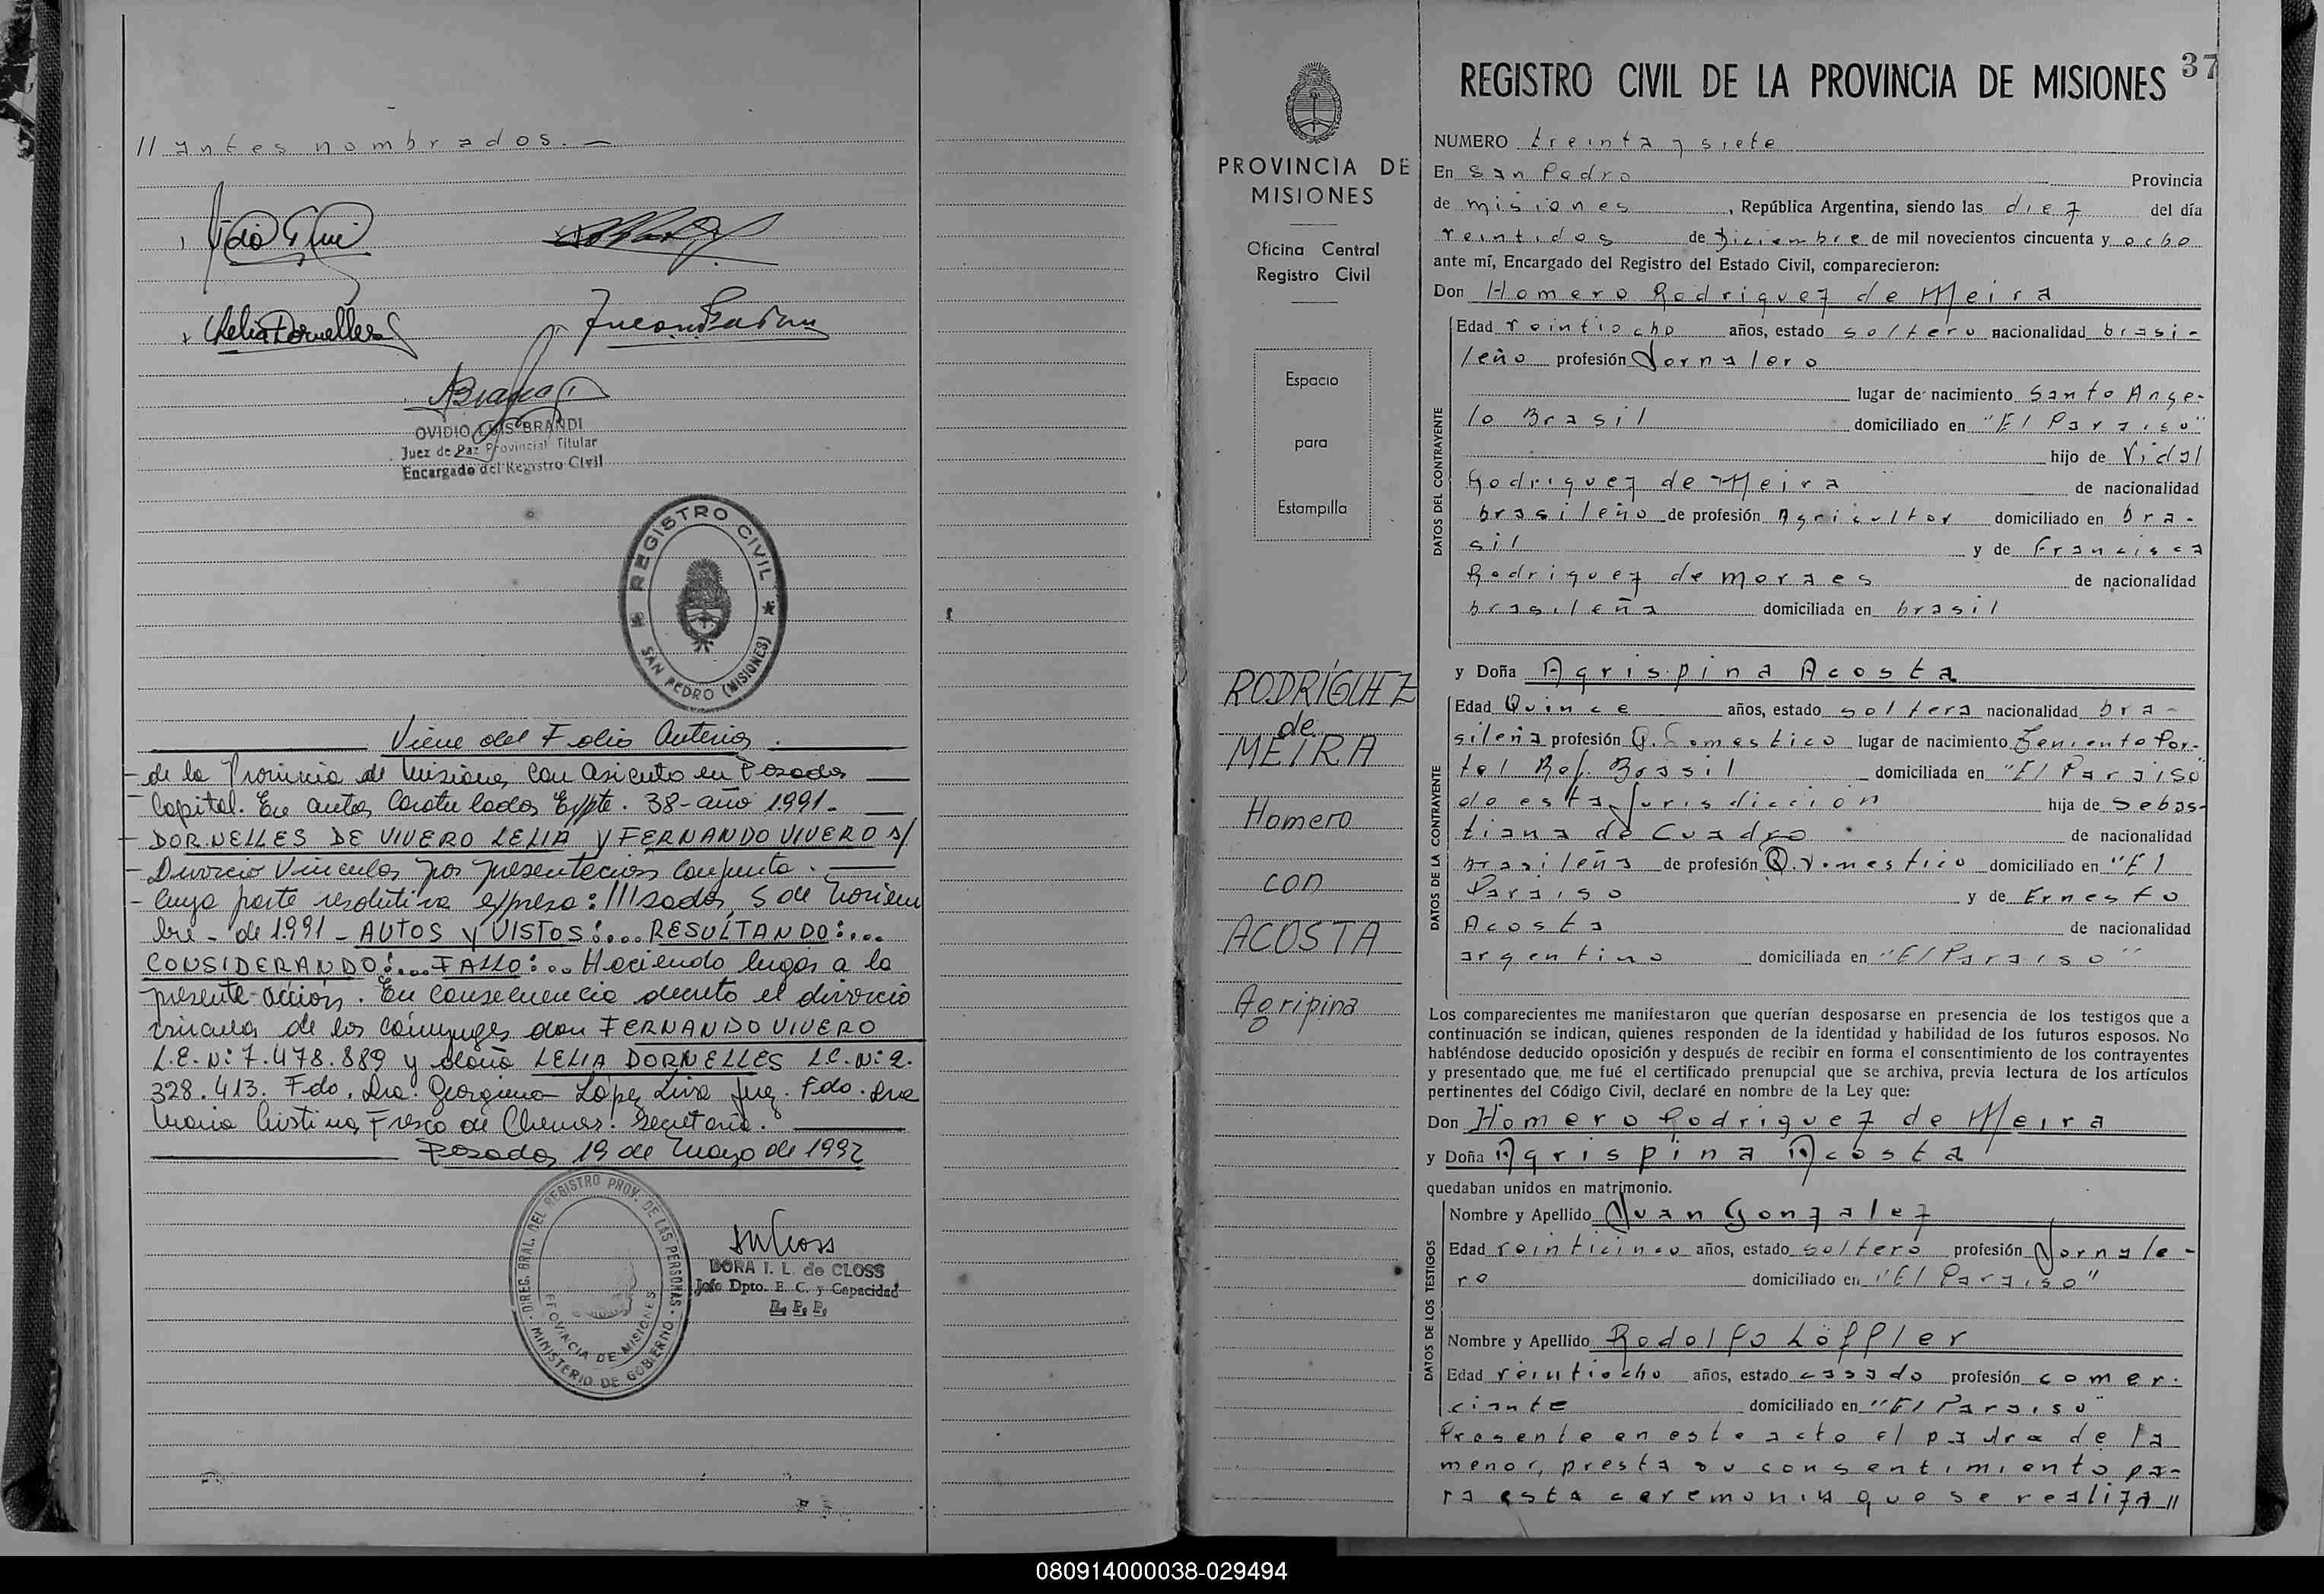 // antes nombrados. —
OVIDIO LUIS BRANDI
Juez de Paz Provincial Titular
Encargado del Registro Civil
REGISTRO CIVIL
SAN PEDRO (MISIONES)
Viene del Folio Anterior.
de la Provincia de Misiones, con asiento en Posadas
Capital. En autos Caratulados Expte. 38- año 1.991-
DORNELLES DE VIVERO LELIA y FERNANDO VIVERO s/
Divorcio Vincular por presentación Conjunta.
Cuya parte resolutiva expresa: ///sadas, 5 de Noviem
bre - de 1.991 - AUTOS y VISTOS:... RESULTANDO:...
CONSIDERANDO:... FALLO:.. Haciendo lugar a la
presente acción. En consecuencia decreto el divorcio
vincular de los cónyuges don FERNANDO VIVERO
L.E. Nº: 7.478.889 y doña LELIA DORNELLES L.C. Nº: 2.
328.413. Fdo. Dra. Georgina López Liva Juez. Fdo. Dra
Maria Cristina Fresco de Chemes. Secretaria.
Posadas, 19 de Mayo de 1992
DIREC. GRAL. DEL REGISTRO PROV. DE LAS PERSONAS
MINISTERIO DE GOBIERNO
PROVINCIA DE MISIONES
DORA I. L. de CLOSS
Jefe Dpto. E. C. y Capacidad
R. P. P.
37
REGISTRO CIVIL DE LA PROVINCIA DE MISIONES
PROVINCIA DE
MISIONES
Oficina Central
Registro Civil
Espacio
para
Estampilla
RODRÍGUEZ
de
MEIRA
Homero
con
ACOSTA
Agripina
NUMERO treinta y siete
En San Pedro Provincia
de misiones, República Argentina, siendo las diez del día
veintidos de Diciembre de mil novecientos cincuenta y ocho
ante mí, Encargado del Registro del Estado Civil, comparecieron:
Don Homero Rodriguez de Meira
DATOS DEL CONTRAYENTE
Edad veintiocho años, estado soltero nacionalidad brasi-
leño profesión Jornalero
lugar de nacimiento Santo Ange-
lo Brasil domiciliado en "El Paraiso"
hijo de Vidal
Rodriguez de Meira de nacionalidad
brasileño de profesión Agricultor domiciliado en bra-
sil y de Francisca
Rodriguez de moraes de nacionalidad
brasileña domiciliada en brasil
y Doña Agrispina Acosta
DATOS DE LA CONTRAYENTE
Edad Quince años, estado soltera nacionalidad bra-
sileña profesión Q. Domestico lugar de nacimiento Teniente Por-
tel Rep. Brasil domiciliada en "El Paraiso"
de esta jurisdicción hija de Sebas-
tiana de Cuadro de nacionalidad
brasileña de profesión Q. Domestico domiciliado en "El
Paraiso y de Ernesto
Acosta de nacionalidad
argentino domiciliada en "El Paraiso"
Los comparecientes me manifestaron que querían desposarse en presencia de los testigos que a
continuación se indican, quienes responden de la identidad y habilidad de los futuros esposos. No
habiéndose deducido oposición y después de recibir en forma el consentimiento de los contrayentes
y presentado que, me fué el certificado prenupcial que se archiva, previa lectura de los artículos
pertinentes del Código Civil, declaré en nombre de la Ley que:
Don Homero Rodriguez de Meira
y Doña Agrispina Acosta
quedaban unidos en matrimonio.
DATOS DE LOS TESTIGOS
Nombre y Apellido Juan Gonzalez
Edad veinticinco años, estado soltero profesión Jornale-
ro domiciliado en "El Paraiso"
Nombre y Apellido Rodolfo Löffler
Edad veintiocho años, estado casado profesión comer-
ciante domiciliado en "El Paraiso"
Presente en este acto el padre de la
menor, presta su consentimiento pa-
ra esta ceremonia que se realiza //
080914000038-029494